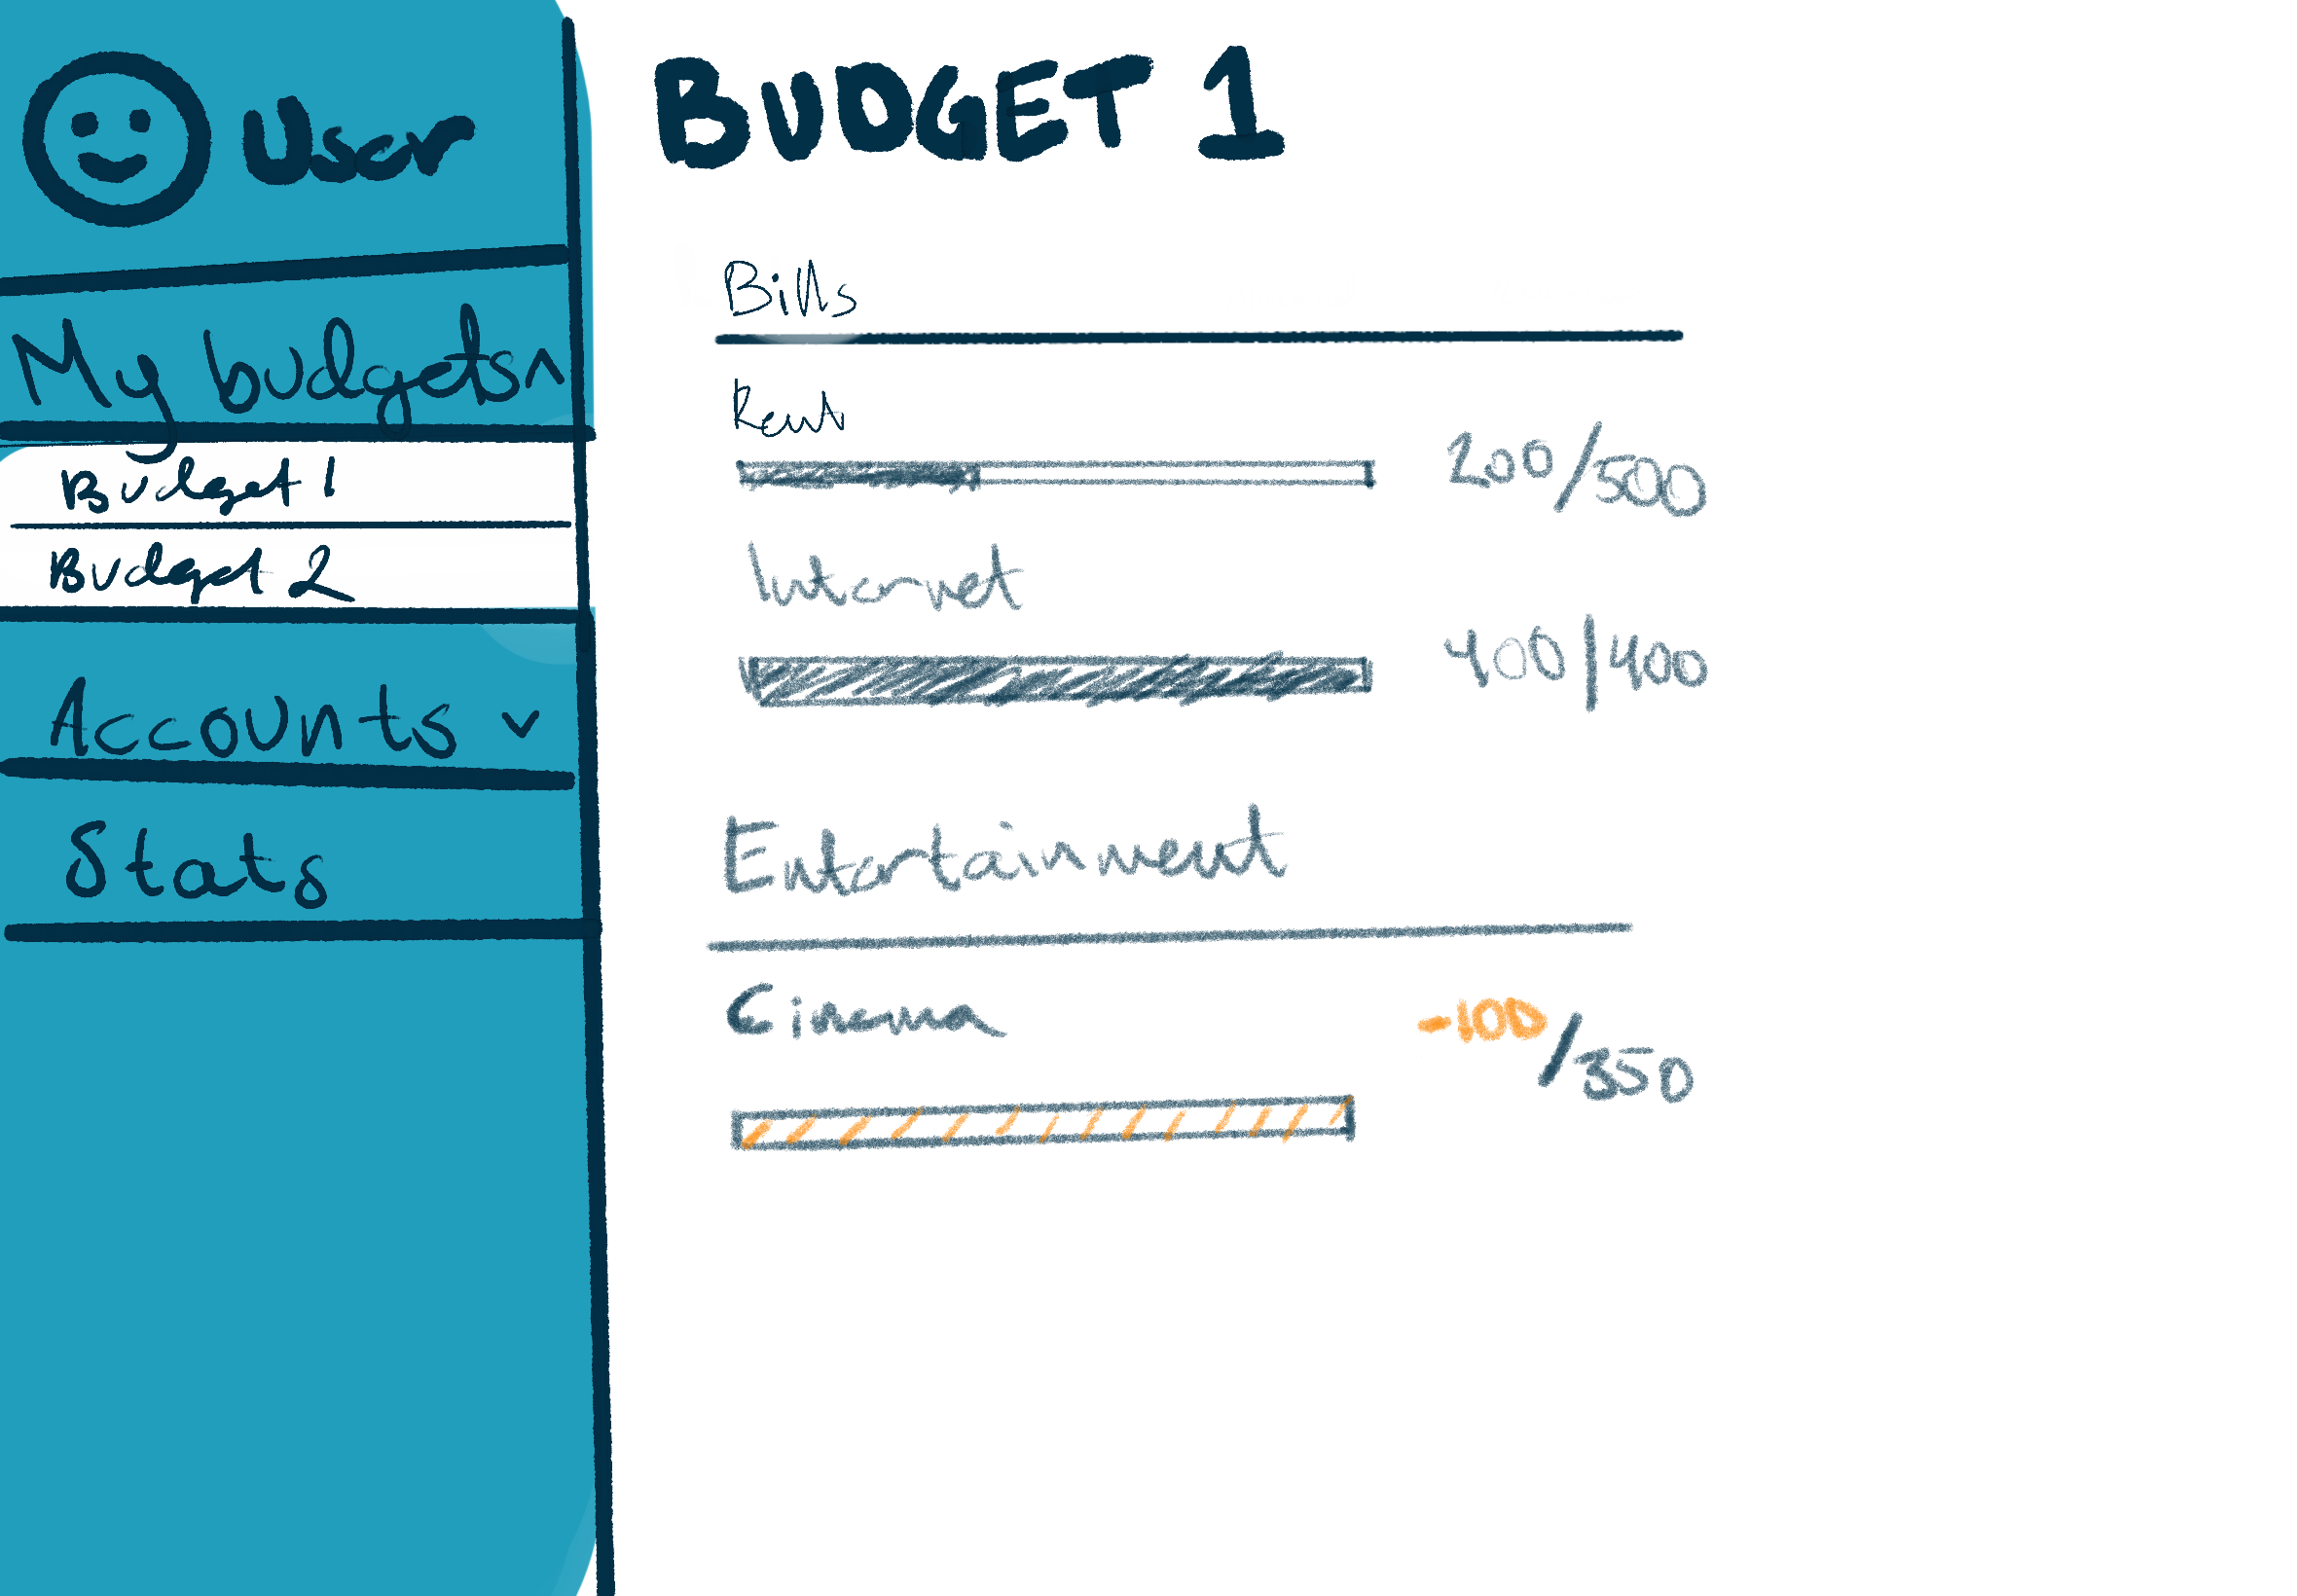 User
My budgets ^
Budget 1
Budget 2
Accounts v
Stats
BUDGET 1
Bills
Rent
200/500
Internet
400/400
Entertainment
Cinema
-100/350